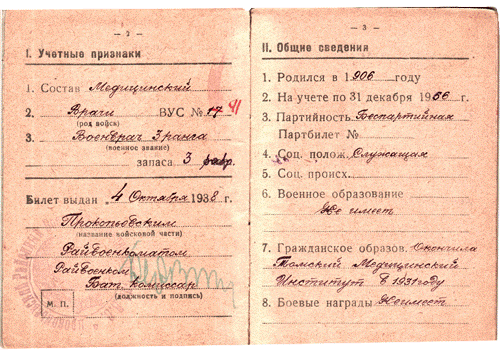 — 2 —
I. Учетные признаки
1. Состав Медицинский
2. Врачи ВУС № 17 41
(род войск)
3. Военврач 3 ранга
(военное звание)
запаса 3 разр.
Билет выдан „4 Октября 1938 г.
Прокопьевским
(название войсковой части)
Райвоенкоматом
Райвоенком
Бат. комиссар
(должность и подпись)
М. П.
— 3 —
II. Общие сведения
1. Родился в 1906 году
2. На учете по 31 декабря 1956 г.
3. Партийность Беспартийная
Партбилет №
4. Соц. полож. Служащая
5. Соц. происх.
6. Военное образование
Не имеет
7. Гражданское образов. Окончила
Томский Медицинский
Институт в 1931 году
8. Боевые награды Не имеет